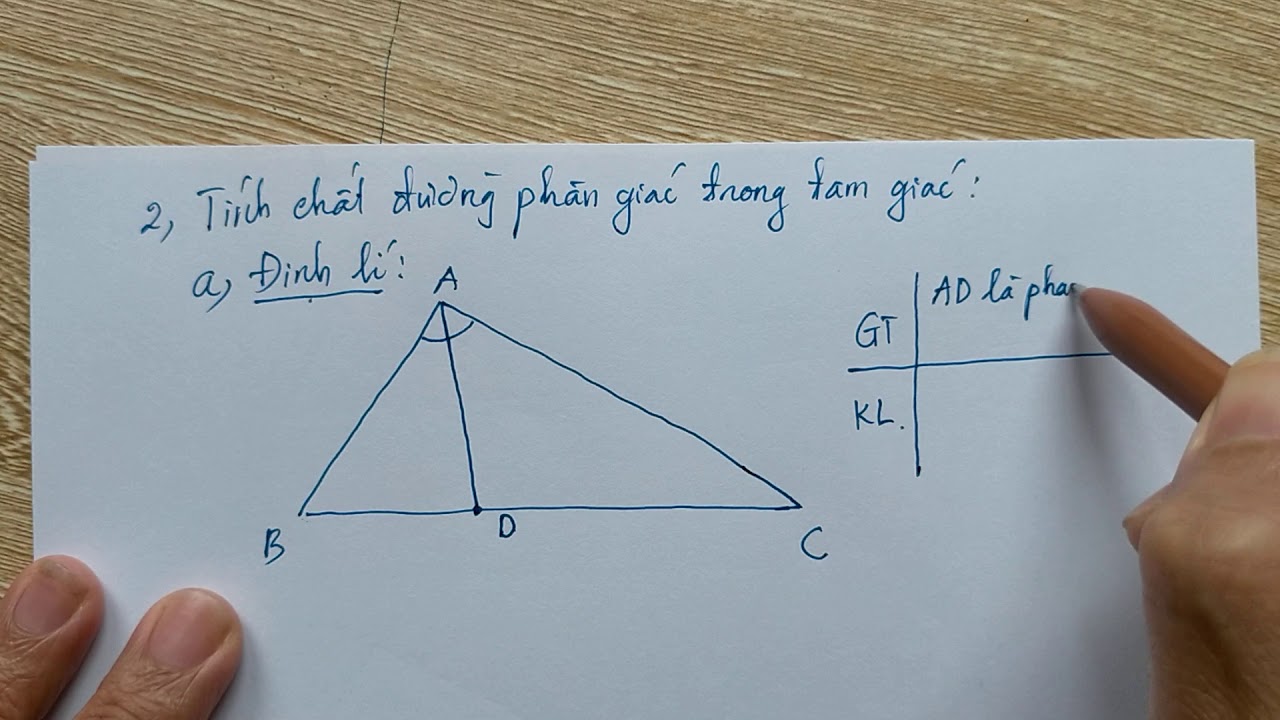 2, Tính chất đường phân giác trong tam giác:
a, Định lí:
A
B
D
C
GT
AD là pha
KL.